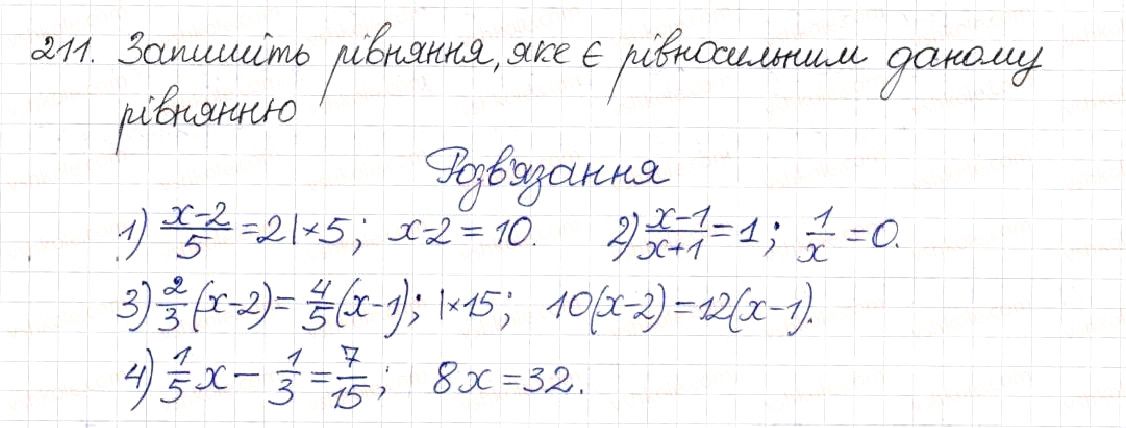 211. Запишіть рівняння, яке є рівносильним даному
рівнянню
Розв'язання
1) (x-2)/5 = 2 | × 5; x-2 = 10. 2) (x-1)/(x+1) = 1; 1/x = 0.
3) 2/3 (x-2) = 4/5 (x-1); | × 15; 10(x-2) = 12(x-1).
4) 1/5 x - 1/3 = 7/15; 8x = 32.